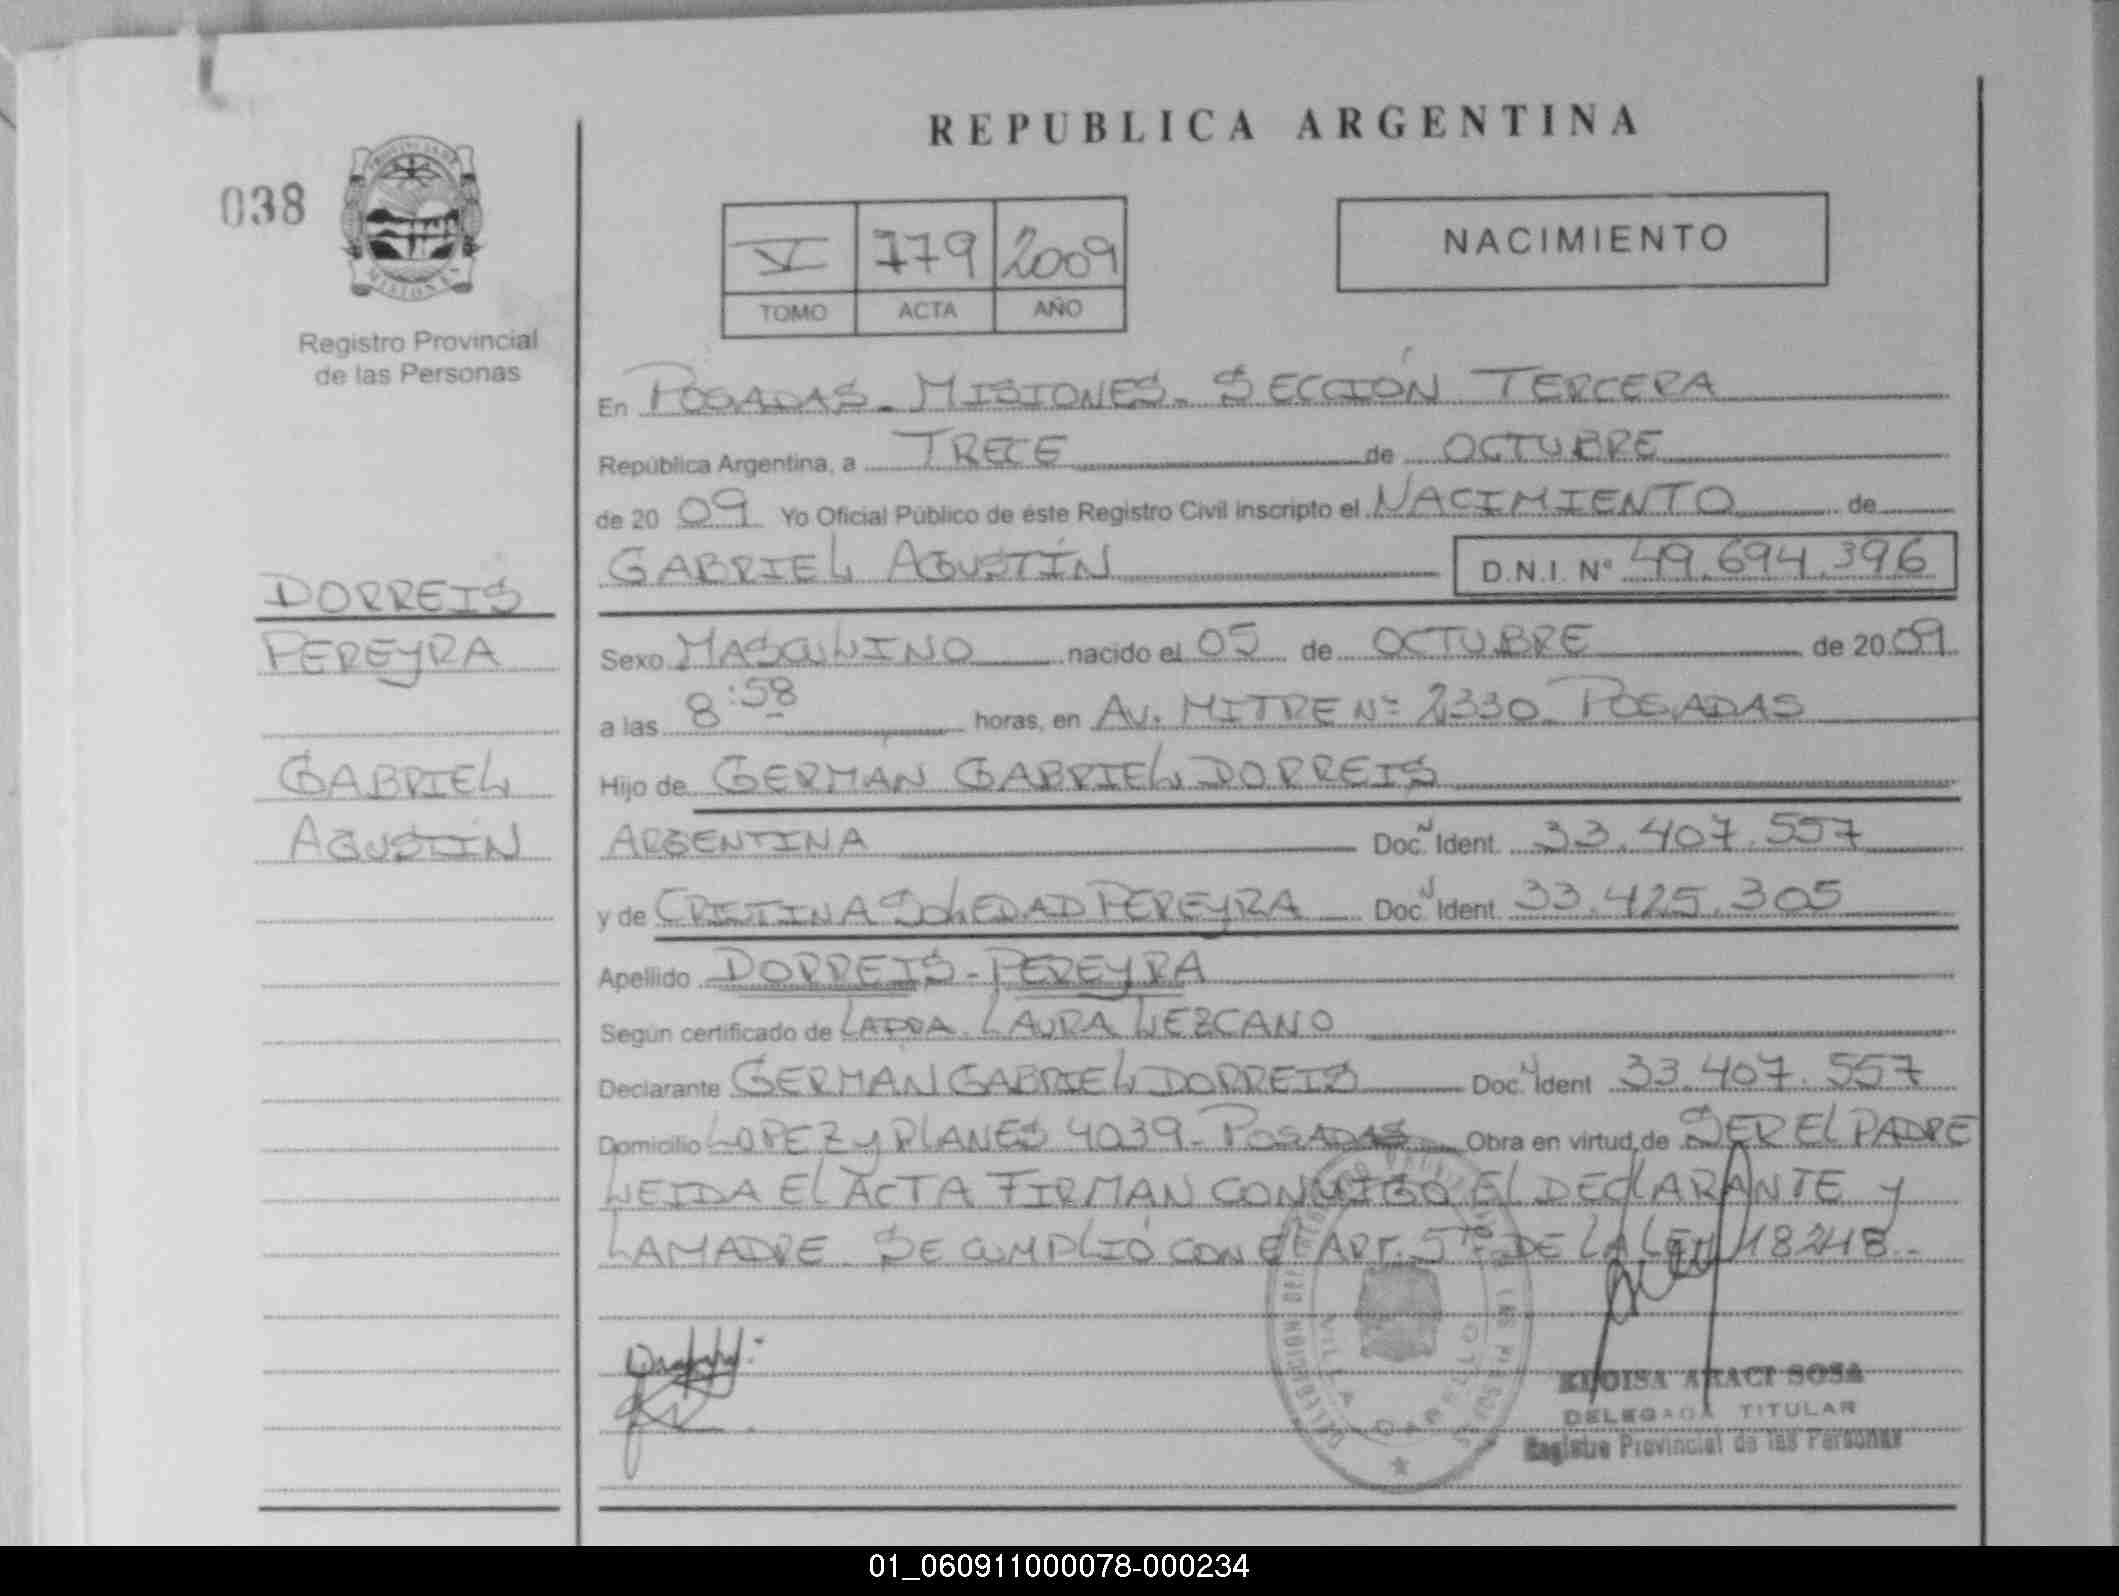 REPUBLICA ARGENTINA
038
PROVINCIA DE
MISIONES
Registro Provincial
de las Personas
V 779 2009
TOMO ACTA AÑO
NACIMIENTO
En POSADAS - MISIONES - SECCIÓN TERCERA
República Argentina, a TRECE de OCTUBRE
de 20 09 Yo Oficial Público de éste Registro Civil inscripto el NACIMIENTO de
GABRIEL AGUSTÍN D.N.I. Nº 49.694.396
DORREIS
PEREYRA
GABRIEL
AGUSTÍN
Sexo MASCULINO nacido el 05 de OCTUBRE de 20 09
a las 8:58 horas, en AV. MITRE Nº 2330 POSADAS
Hijo de GERMAN GABRIEL DORREIS
ARGENTINA Doc. Ident. 33.407.557
y de CRISTINA SOLEDAD PEREYRA Doc. Ident. 33.425.305
Apellido DORREIS - PEREYRA
Según certificado de LA DRA. LAURA LEZCANO
Declarante GERMAN GABRIEL DORREIS Doc. Ident 33.407.557
Domicilio LOPEZ y PLANES 4039 - POSADAS Obra en virtud de SER EL PADRE
LEIDA EL ACTA FIRMAN CONMIGO EL DECLARANTE y
LA MADRE. SE CUMPLIÓ CON EL ART. 5to DE LA LEY 18248.-
VILLA CABELLO
ELOISA ARACI SOSA
DELEGADA TITULAR
Registro Provincial de las Personas
01_060911000078-000234